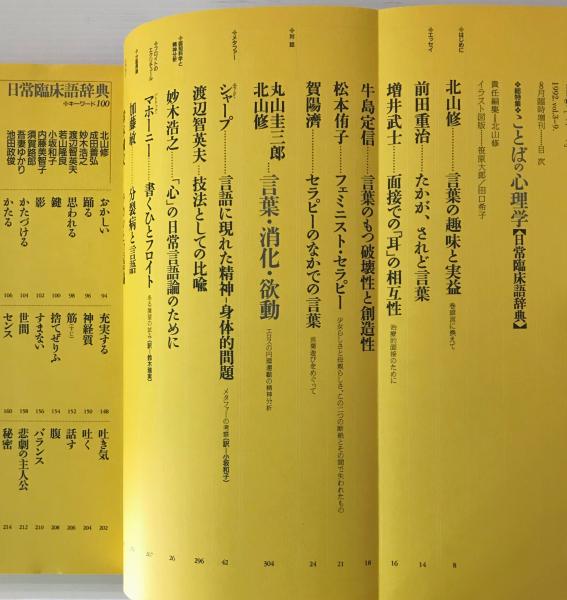 1992. vol.3-9.
8月臨時増刊——目次
❖総特集❖ことばの心理学【日常臨床語辞典】
責任編集=北山修
イラスト図版——笹原大郎／田口希子
❖はじめに
北山修………言葉の趣味と実益 巻頭言に換えて 8
❖エッセイ
前田重治………たかが、されど言葉 14
増井武士………面接での「耳」の相互性 治療的面接のために 16
牛島定信………言葉のもつ破壊性と創造性 18
松本侑子………フェミニスト・セラピー 少女らしさと母親らしさ、この二つの断絶とその間で失われたもの 21
賀陽濟………セラピーのなかでの言葉 言葉遊びをめぐって 24
❖対話
丸山圭三郎
北山修………言葉・消化・欲動 エロスの円環運動の精神分析 304
❖メタファー
シャープ………言語に現れた精神-身体的問題 メタファーの考察(訳——小坂和子) 42
渡辺智英夫………技法としての比喩 296
妙木浩之………「心」の日常言語論のために 26
マホーニー………書くひとフロイト ある展望の試み(訳・鈴木瑞実) 267
加藤敏………分裂病と言語
日常臨床語辞典
❖キーワード100
北山修
成田善弘
妙木浩之
渡辺智英夫
若山隆良
小坂和子
内藤美智子
須賀路郎
吾妻ゆかり
池田政俊
おかしい 94
踊る 96
思われる 98
鍵 100
影 102
かたづける 104
かたる 106
充実する 148
神経質 150
筋 152
捨てぜりふ 154
すまない 156
世間 158
センス 160
吐き気 202
吐く 204
話す 206
腹 208
バランス 210
悲劇の主人公 212
秘密 214